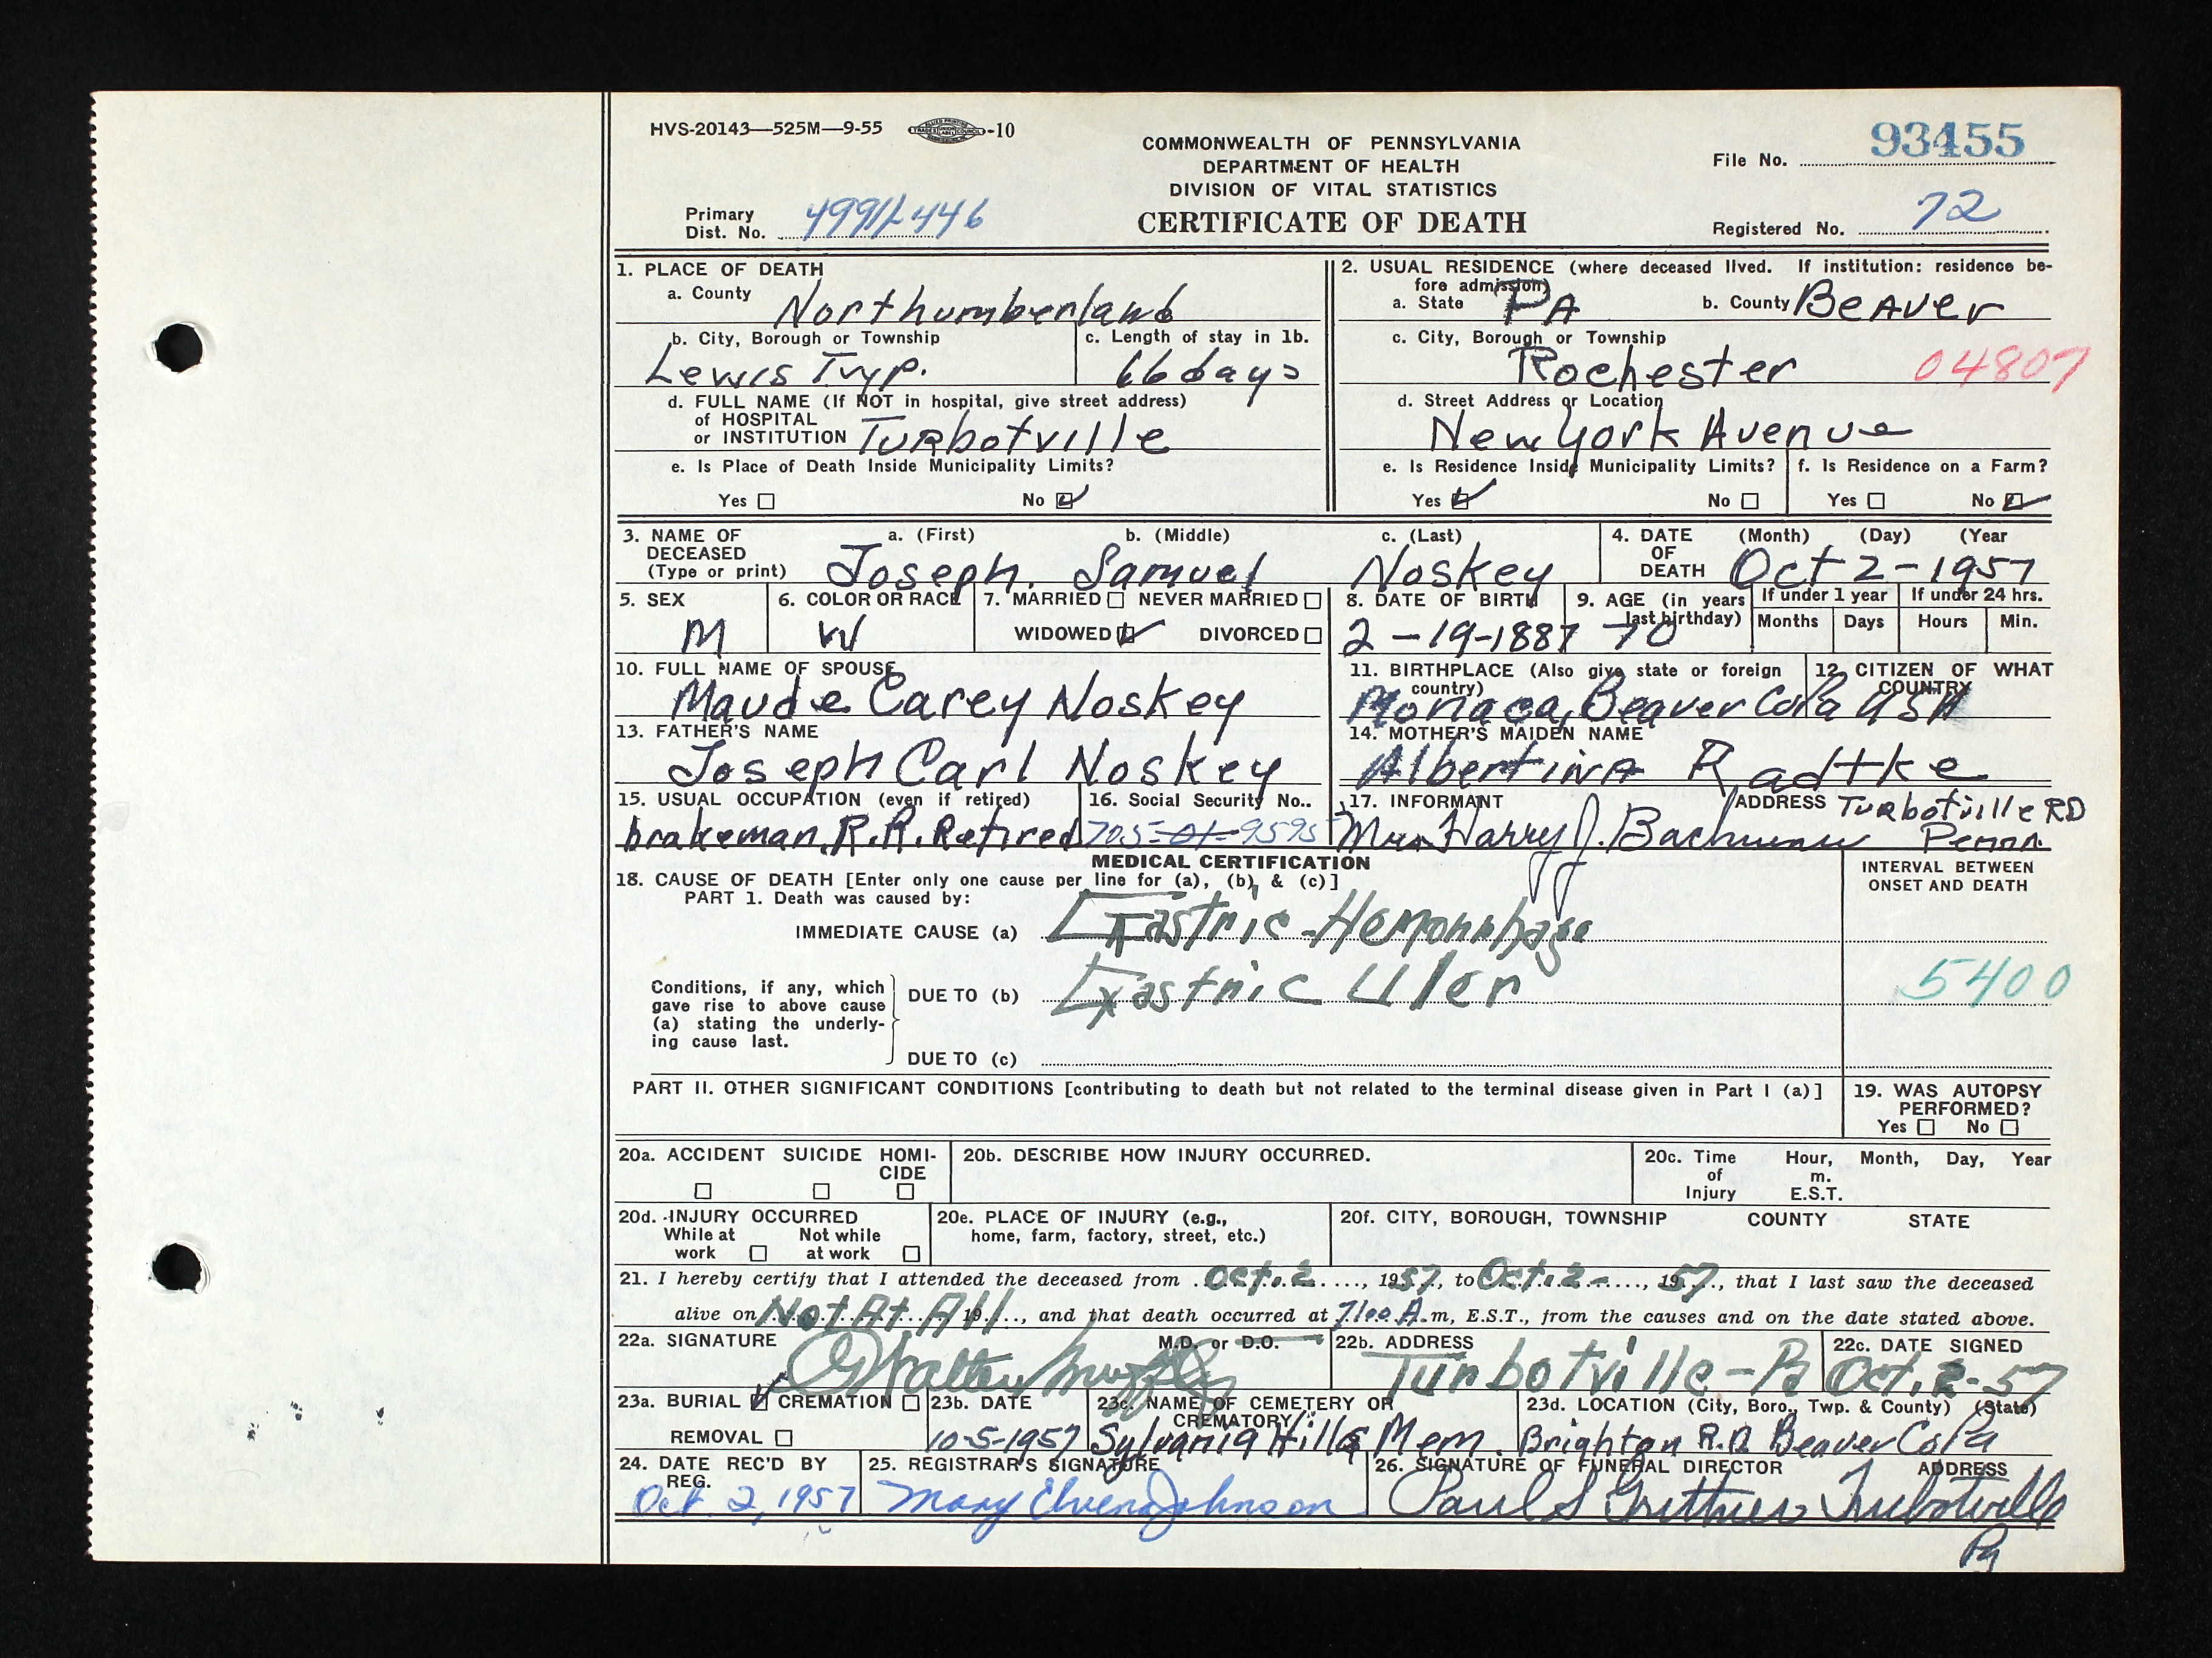 HVS-20143—525M—9-55 -10
COMMONWEALTH OF PENNSYLVANIA
DEPARTMENT OF HEALTH
DIVISION OF VITAL STATISTICS
CERTIFICATE OF DEATH
File No. 93455
Primary
Dist. No.
Registered No. 72
1. PLACE OF DEATH
a. County Northumberland
b. City, Borough or Township
Lewis Twp.
c. Length of stay in 1b.
66 days
d. FULL NAME (If NOT in hospital, give street address)
of HOSPITAL
or INSTITUTION Turbotville
e. Is Place of Death Inside Municipality Limits?
Yes ☐ No ☑
2. USUAL RESIDENCE (where deceased lived. If institution: residence be-
fore admission)
a. State PA b. County Beaver
c. City, Borough or Township
Rochester 04807
d. Street Address or Location
New York Avenue
e. Is Residence Inside Municipality Limits?
Yes ☑ No ☐
f. Is Residence on a Farm?
Yes ☐ No ☑
3. NAME OF
DECEASED
(Type or print)
a. (First) b. (Middle) c. (Last)
Joseph. Samuel Noskey
4. DATE
OF
DEATH
(Month) (Day) (Year
Oct 2-1957
5. SEX
M
6. COLOR OR RACE
W
7. MARRIED ☐ NEVER MARRIED ☐
WIDOWED ☑ DIVORCED ☐
8. DATE OF BIRTH
2-19-1887
9. AGE (in years
last birthday)
70
If under 1 year
Months Days
If under 24 hrs.
Hours Min.
10. FULL NAME OF SPOUSE
Maude Carey Noskey
11. BIRTHPLACE (Also give state or foreign
country)
Monaca, Beaver Co Pa
12. CITIZEN OF WHAT
COUNTRY
USA
13. FATHER'S NAME
Joseph Carl Noskey
14. MOTHER'S MAIDEN NAME
Albertina Radtke
15. USUAL OCCUPATION (even if retired)
brakeman R.R. Retired
16. Social Security No..
705-01-9595
17. INFORMANT
Mrs Harry J.
ADDRESS Turbotville RD
Penna.
MEDICAL CERTIFICATION
18. CAUSE OF DEATH [Enter only one cause per line for (a), (b) & (c)]
PART 1. Death was caused by:
IMMEDIATE CAUSE (a) Gastric-Hemorrhage
Conditions, if any, which
gave rise to above cause
(a) stating the underly-
ing cause last.
DUE TO (b) Gastric Ulcer
DUE TO (c)
INTERVAL BETWEEN
ONSET AND DEATH
5400
PART II. OTHER SIGNIFICANT CONDITIONS [contributing to death but not related to the terminal disease given in Part I (a)]
19. WAS AUTOPSY
PERFORMED?
Yes ☐ No ☐
20a. ACCIDENT SUICIDE HOMI-
CIDE
☐ ☐ ☐
20b. DESCRIBE HOW INJURY OCCURRED.
20c. Time
of
Injury
Hour, Month, Day, Year
m.
E.S.T.
20d. INJURY OCCURRED
While at Not while
work ☐ at work ☐
20e. PLACE OF INJURY (e.g.,
home, farm, factory, street, etc.)
20f. CITY, BOROUGH, TOWNSHIP COUNTY STATE
21. I hereby certify that I attended the deceased from Oct. 2, 1957, to Oct. 2-, 1957, that I last saw the deceased
alive on Not At All 19..., and that death occurred at 7:00 A.m, E.S.T., from the causes and on the date stated above.
22a. SIGNATURE
M.D. or D.O.
22b. ADDRESS
Turbotville-Pa
22c. DATE SIGNED
Oct. 2-57
23a. BURIAL ☑ CREMATION ☐
REMOVAL ☐
23b. DATE
10-5-1957
23c. NAME OF CEMETERY OR
CREMATORY
Sylvania Hills Mem.
23d. LOCATION (City, Boro., Twp. & County) (State)
Brighton R.D. Beaver Co Pa
24. DATE REC'D BY
REG.
Oct. 2, 1957
25. REGISTRAR'S SIGNATURE
Mary Johnson
26. SIGNATURE OF FUNERAL DIRECTOR ADDRESS
Paul S Turbotville
Pa